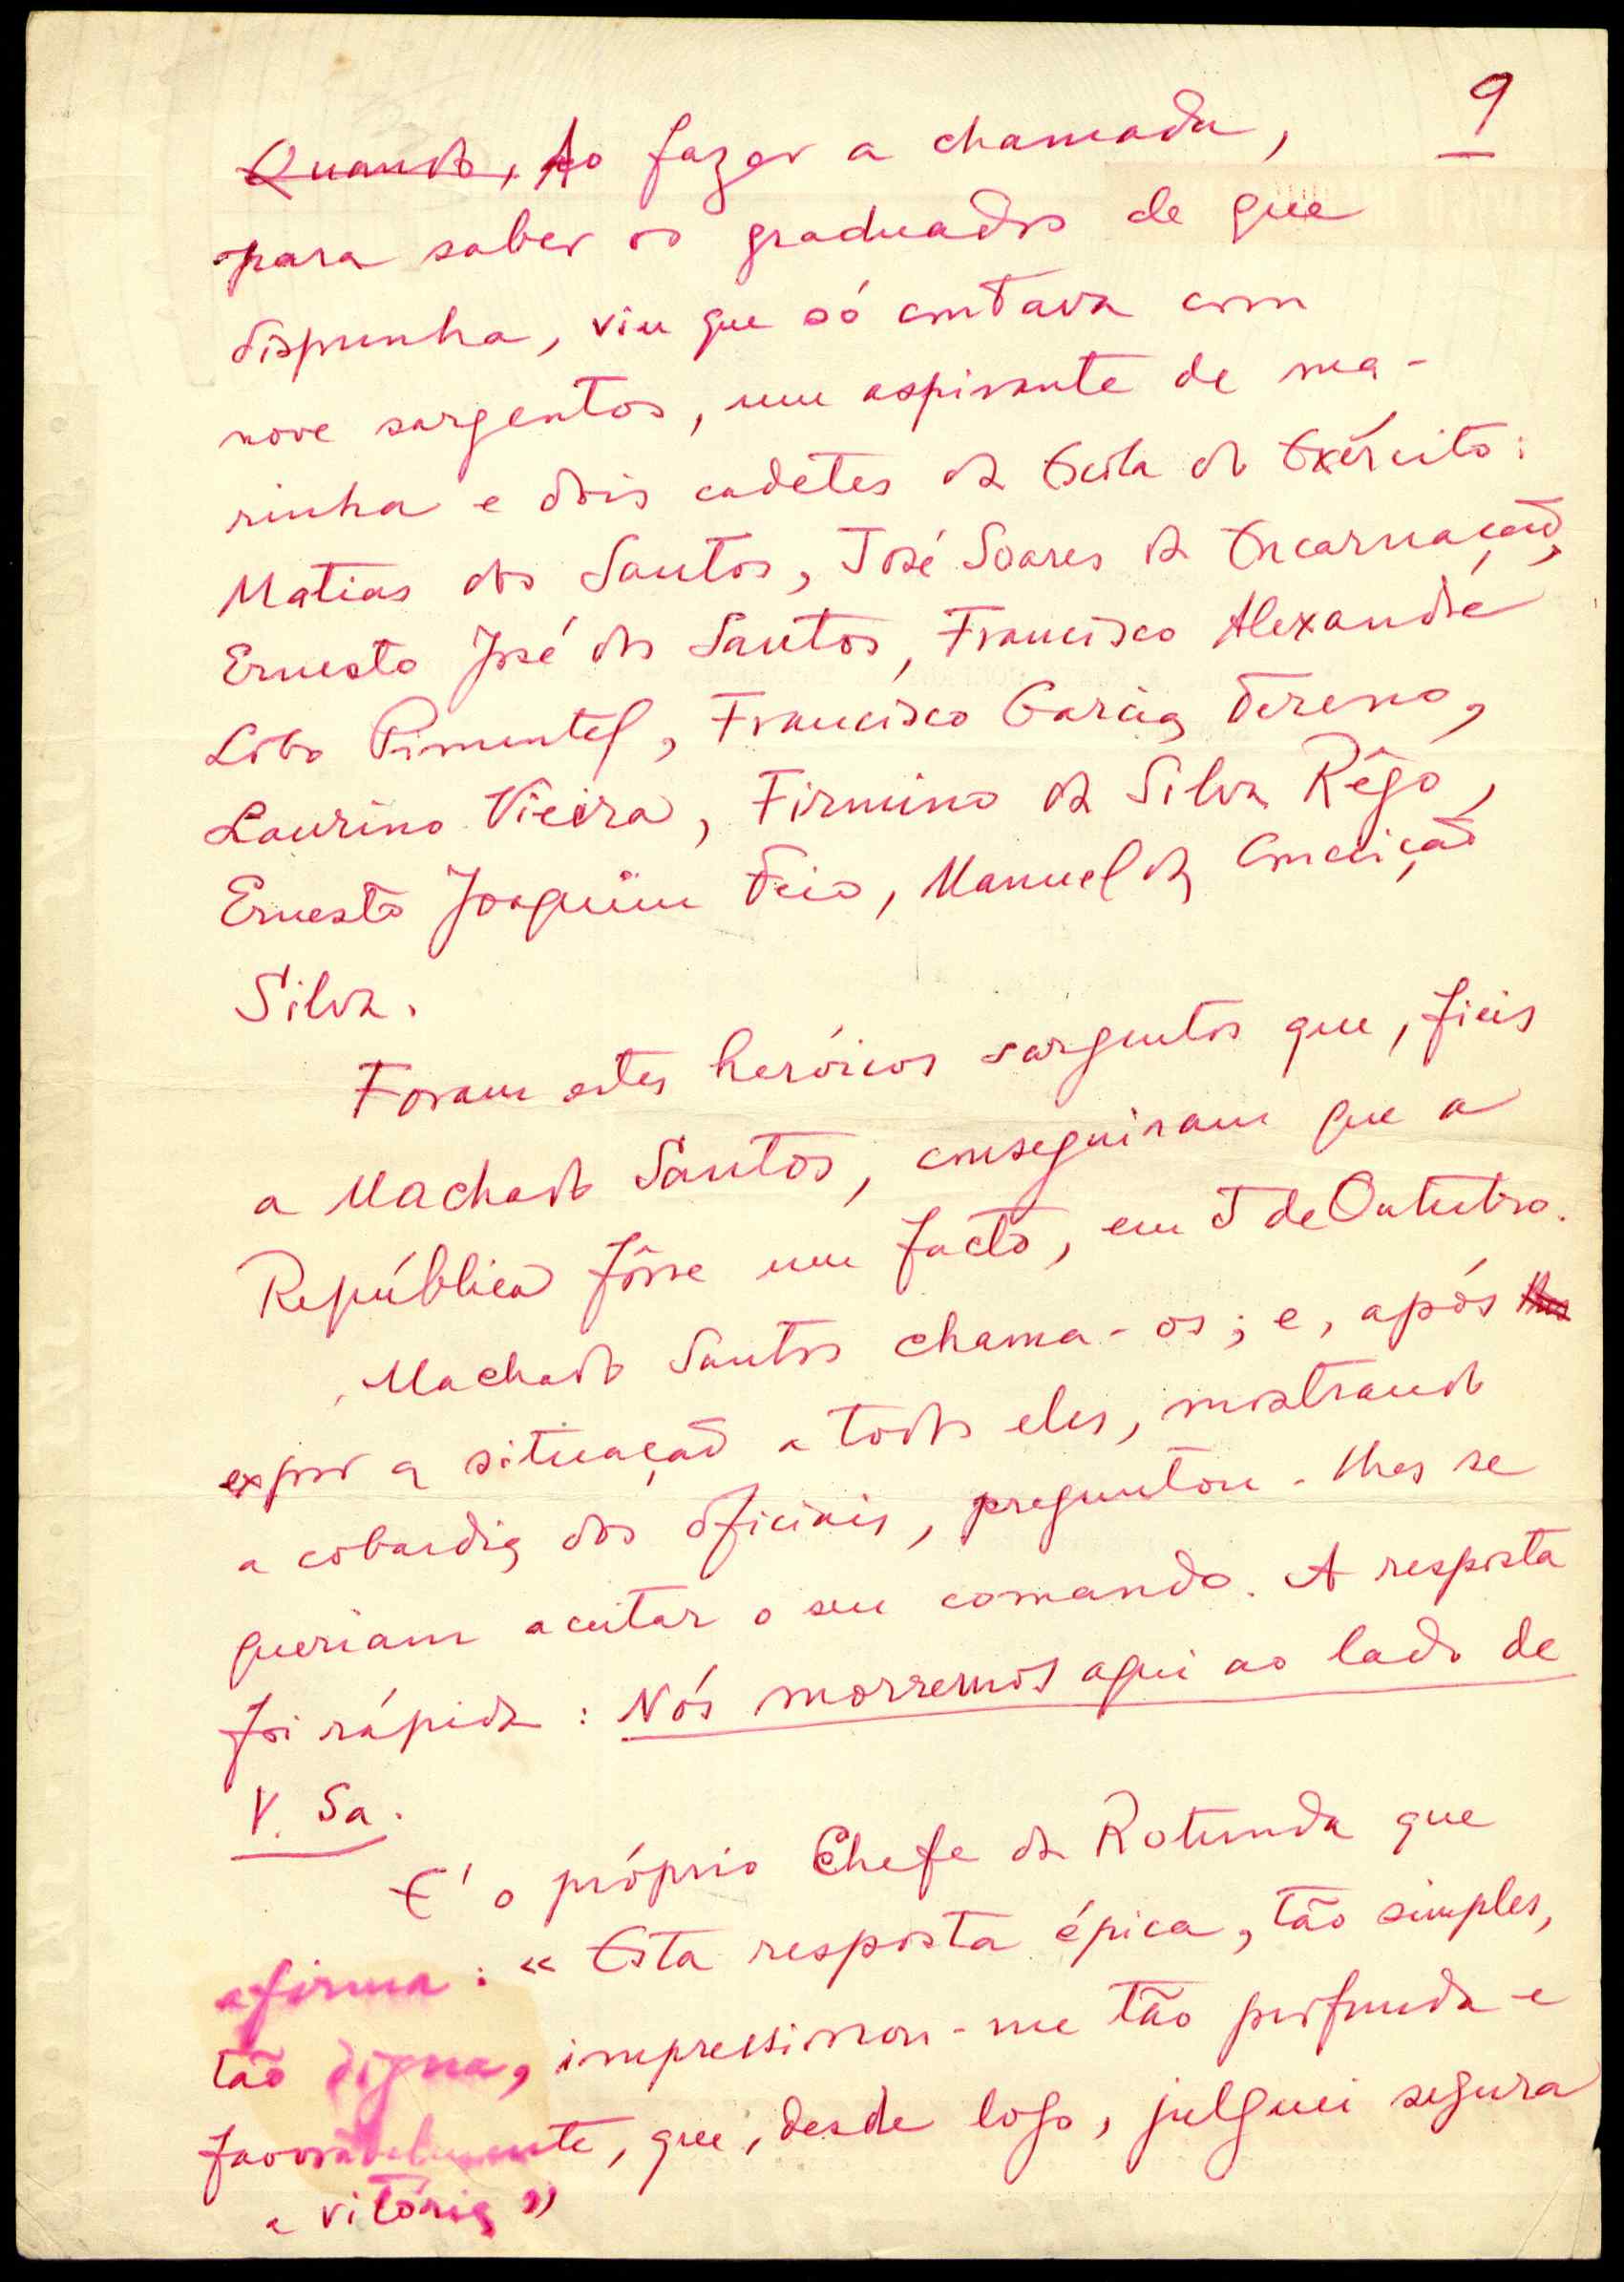 9
~~Quando,~~ Ao fazer a chamada,
para saber os graduados de que
dispunha, viu que só contava com
nove sargentos, um aspirante de ma-
rinha e dois cadetes da Escola do Exército:
Matias dos Santos, José Soares da Encarnação,
Ernesto José dos Santos, Francisco Alexandre
Lobo Pimentel, Francisco Garcia Tereno,
Laurino Vieira, Firmino da Silva Rêgo,
Ernesto Joaquim Feio, Manuel da Conceição
Silva.
Foram estes heróicos sargentos que, fieis
a Machado Santos, conseguiram que a
República fôsse um facto, em 5 de Outubro.
Machado Santos chama-os; e, após
expor a situação a todos eles, mostrando
a cobardia dos oficiais, preguntou-lhes se
queriam aceitar o seu comando. A resposta
foi rápida: Nós morremos aqui ao lado de
V. Sa.
E' o próprio Chefe da Rotunda que
afirma: « Esta resposta épica, tão simples,
tão digna, impressionou-me tão profunda e
favoravelmente, que, desde logo, julguei segura
a vitória »